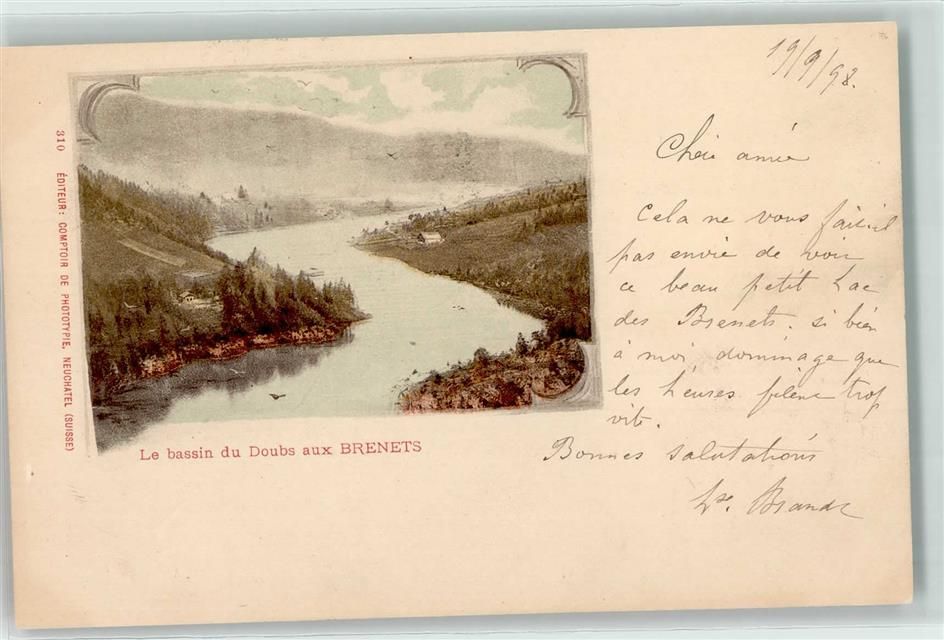 19/9/98.
Chère amie
Cela ne vous fait-il
pas envie de voir
ce beau petit Lac
des Brenets. si bien
à moi dommage que
les heures filent trop
vite.
Bonnes salutations
Lse. Brandt
Le bassin du Doubs aux BRENETS
310 ÉDITEUR: COMPTOIR DE PHOTOTYPIE, NEUCHATEL (SUISSE)